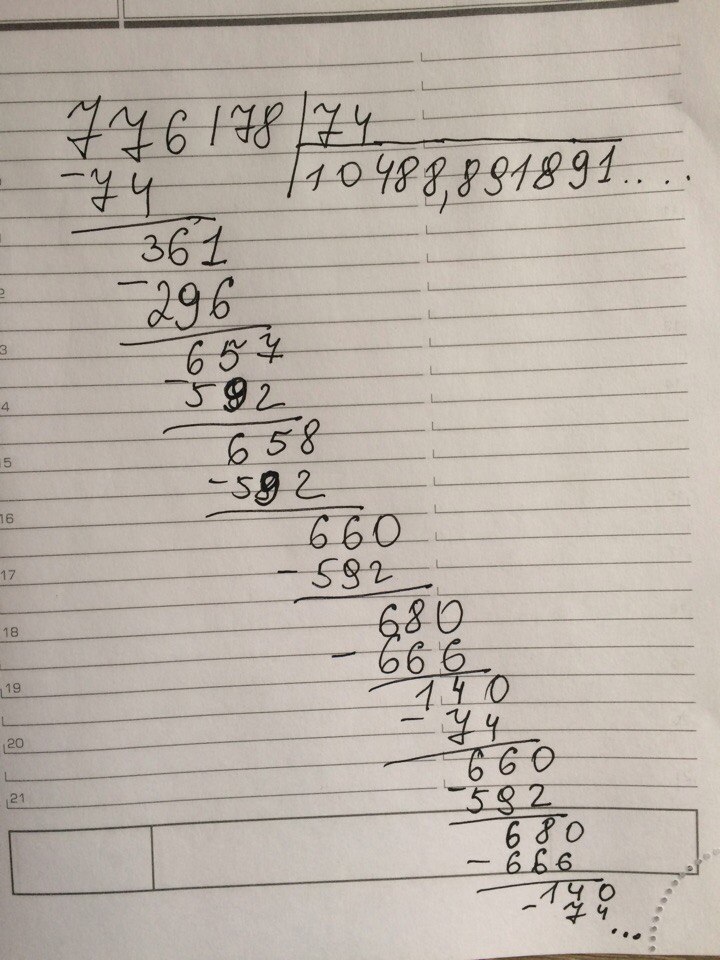 776178 74
-74 10488,891891.....
361
-296
657
-592
658
-592
660
-592
680
-666
140
-74
660
-592
680
-666
140
-74
...
2
3
4
15
16
17
18
19
20
21